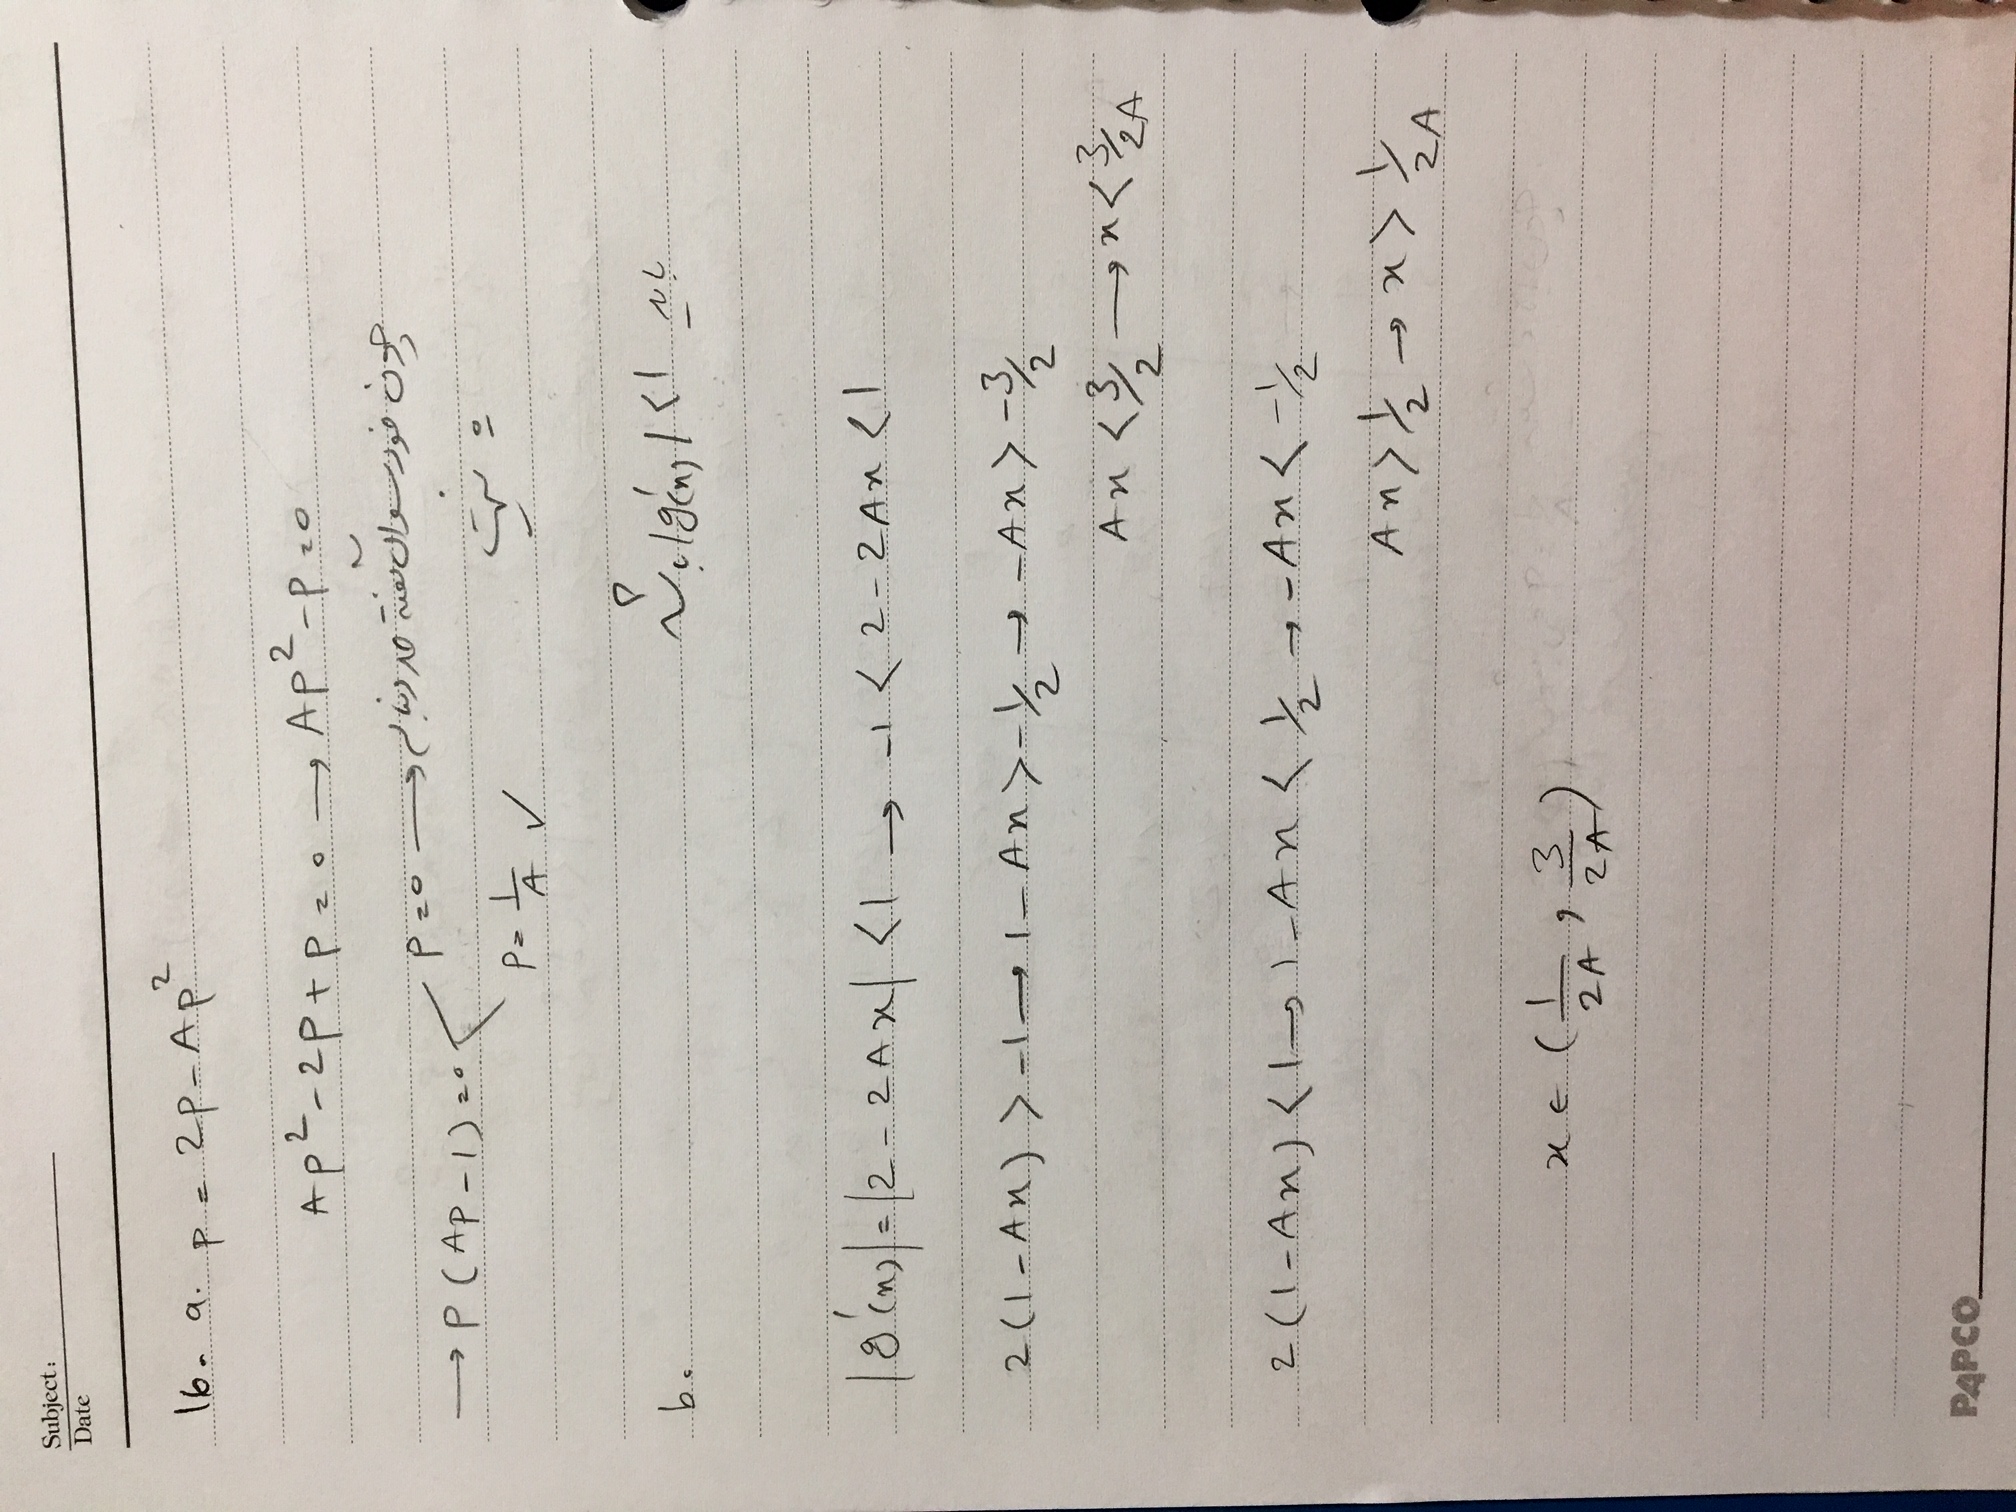 Subject:
Date
16. a. p = 2p - Ap²
Ap² - 2p + p = 0 → Ap² - p = 0
→ p(Ap - 1) = 0
p = 0 → چون خود سوال گفته حد دنباله
0 نیست
p = 1/A ✓
b.
باید |g'(x)| < 1 باشد
|g'(x)| = |2 - 2Ax| < 1 → -1 < 2 - 2Ax < 1
2(1 - Ax) > -1 → 1 - Ax > -1/2 → -Ax > -3/2
Ax < 3/2 → x < 3/2A
2(1 - Ax) < 1 → 1 - Ax < 1/2 → -Ax < -1/2
Ax > 1/2 → x > 1/2A
x ∈ (1/2A, 3/2A)
PAPCO